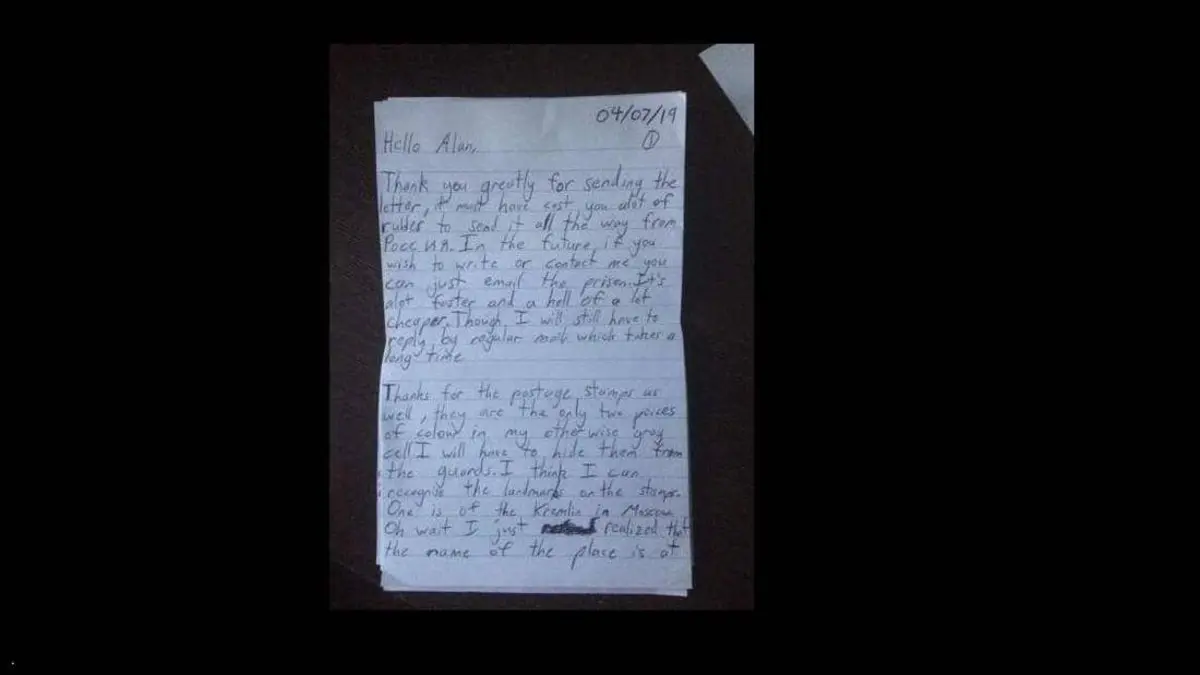 04/07/19
①
Hello Alan,
Thank you greatly for sending the
letter, it must have cost you alot of
rubles to send it all the way from
Россия. In the future, if you
wish to write or contact me you
can just email the prison. It's
alot faster and a hell of a lot
cheaper. Though, I will still have to
reply by regular mail which takes a
long time
Thanks for the postage stamps as
well, they are the only two peices
of colour in my otherwise gray
cell I will have to hide them from
the guards. I think I can
recognise the landmarks on the stamps.
One is of the Kremlin in Moscow
Oh wait I just realized that
the name of the place is at